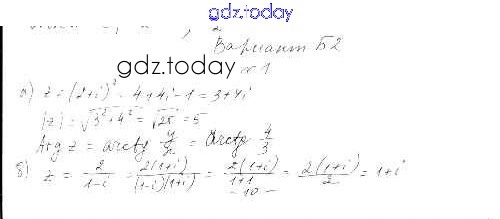 gdz.today
Вариант Б2
gdz.today
№1
а) z = (2+i)² = 4+4i-1 = 3+4i
|z| = √3²+4² = √25 = 5
Arg z = arctg y/x = arctg 4/3
б) z = 2/1-i = 2(1+i)/(1-i)(1+i) = 2(1+i)/1+1 = 2(1+i)/2 = 1+i
- 10 -